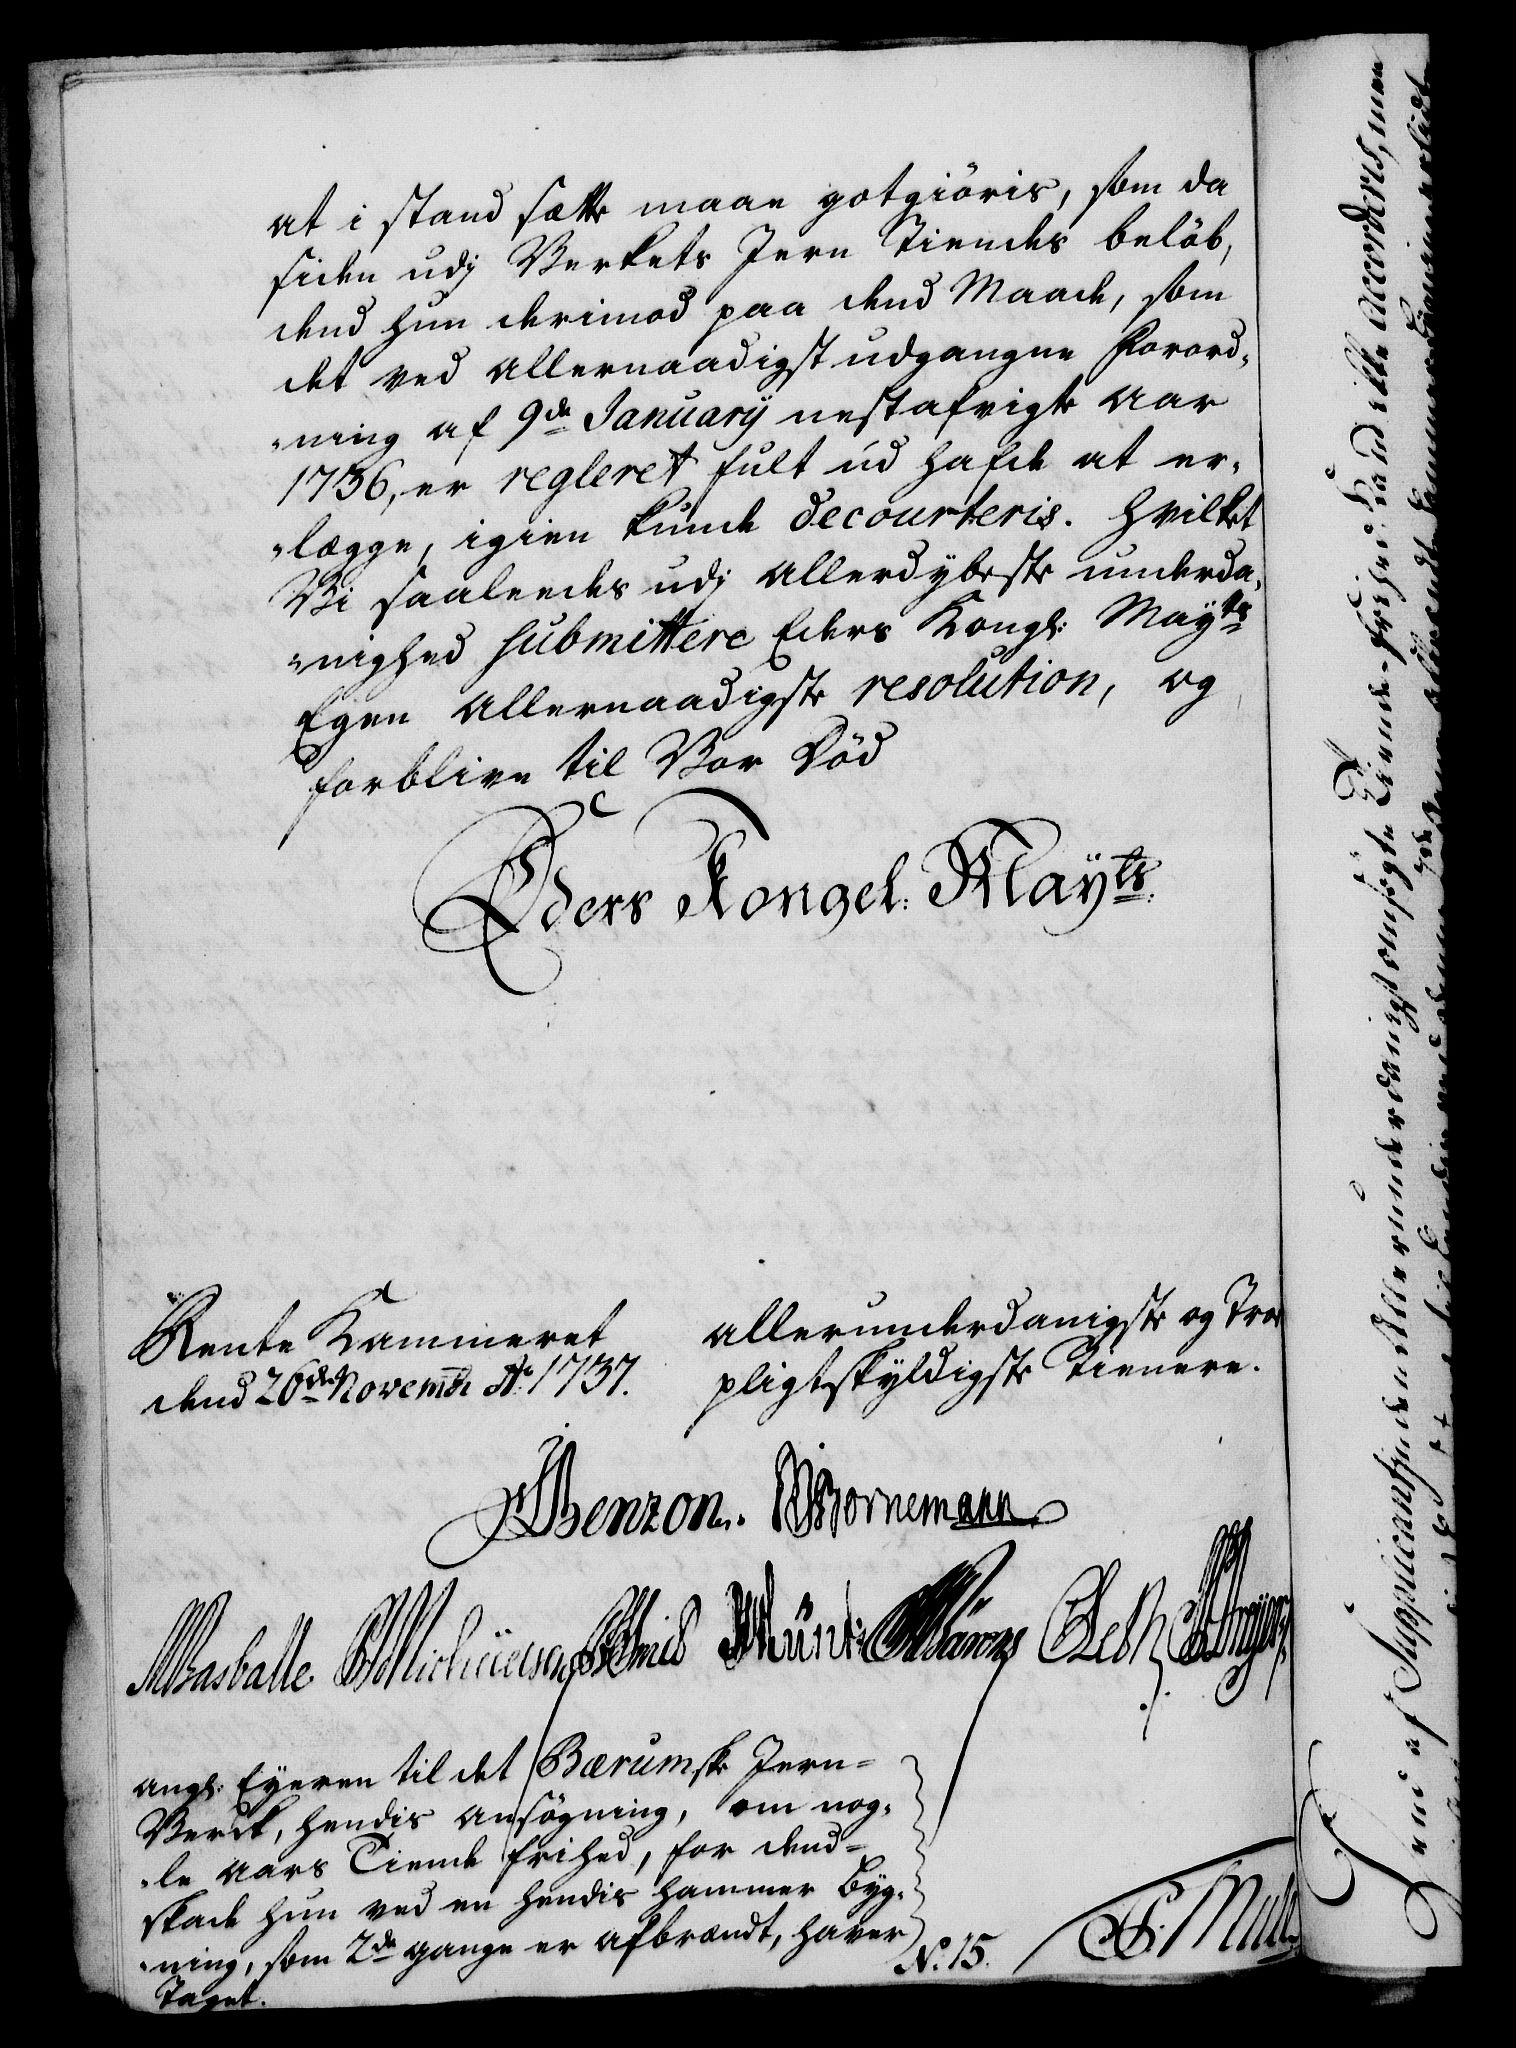 at i stand sætte maae godtgiöris, som da
siden udj Verkets Jern Tiendes belöb,
dend hun derimod paa dend Maade, som
det ved allernaadigst udgangne Forord„
„ning af 9de January nestafvigte aar
1736, er regleret fult ud hafde at er„
„lægge, igien kunde decourteris. Hvilket
Vi saaleedes udj allerdybeste underda„
„nighed submittere Eders Kongl: Mayts
Egen allernaadigste resolution, og
forblive til Vor Död
Eders Kongel: Mayts.
Rente Kammeret
dend 26de Novembr Ao 1737.
allerunderdanigste og Troe
pligtskyldigste Tienere.
Benzon. Bornemann
MBasballe
angl: Eyeren til det Bærumske Jern=
Verck, hendis ansögning, om nog„
„le aars Tiende frihed, for dend=
skade hun ved en hendis hammer Byg„
„ning, som 2de gange er afbrændt, haver
Taget.
No. 15.
Jend af Supplicantinden allerunderdanigst ansögte Tiende-friheed kand ikke accorderis, men